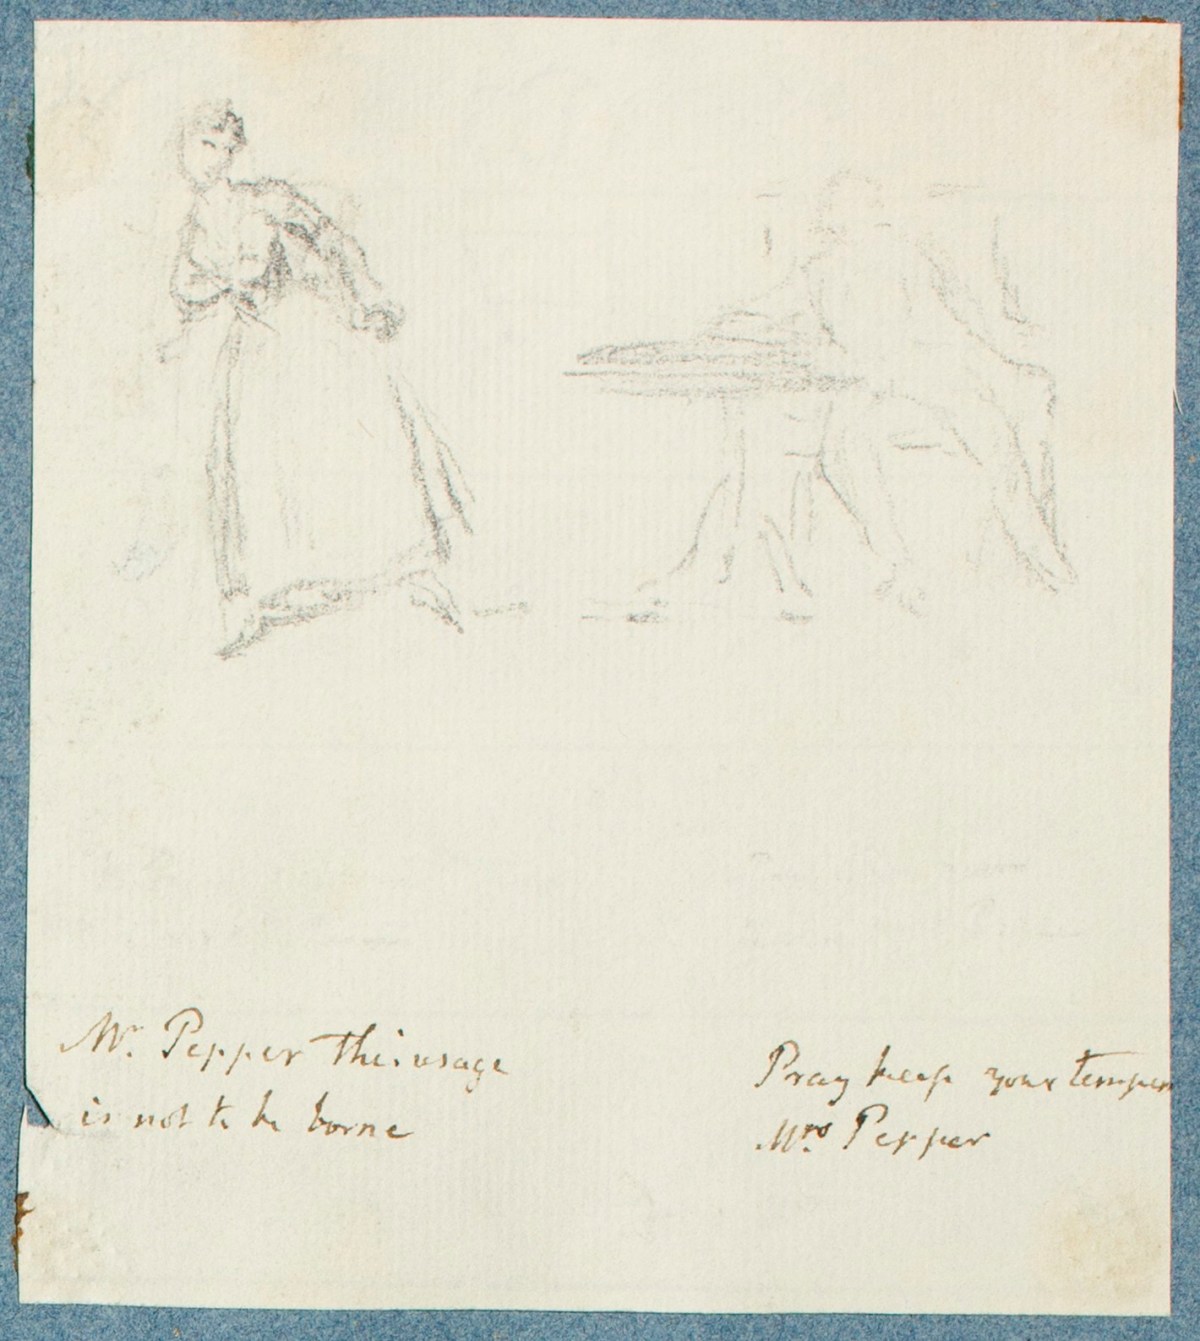 Mr. Pepper this usage
is not to be borne
Pray keep your temper
Mrs. Pepper